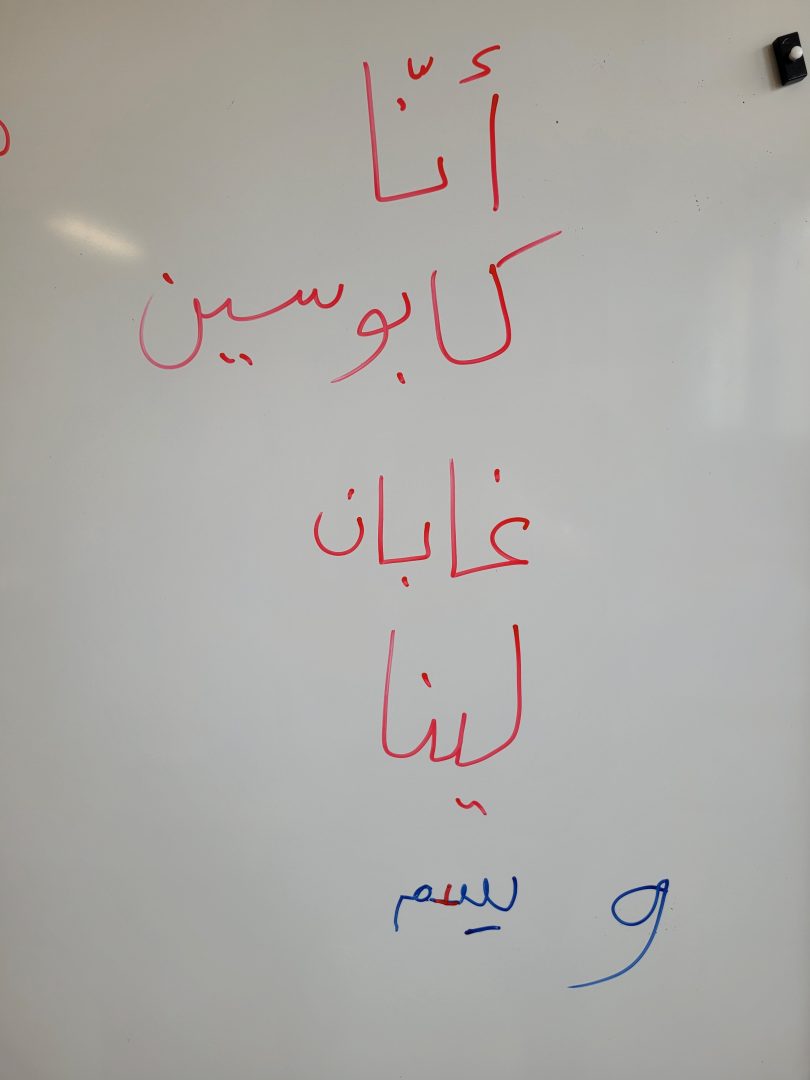 أنّا
كابوسين
غابان
لينا
و سيم